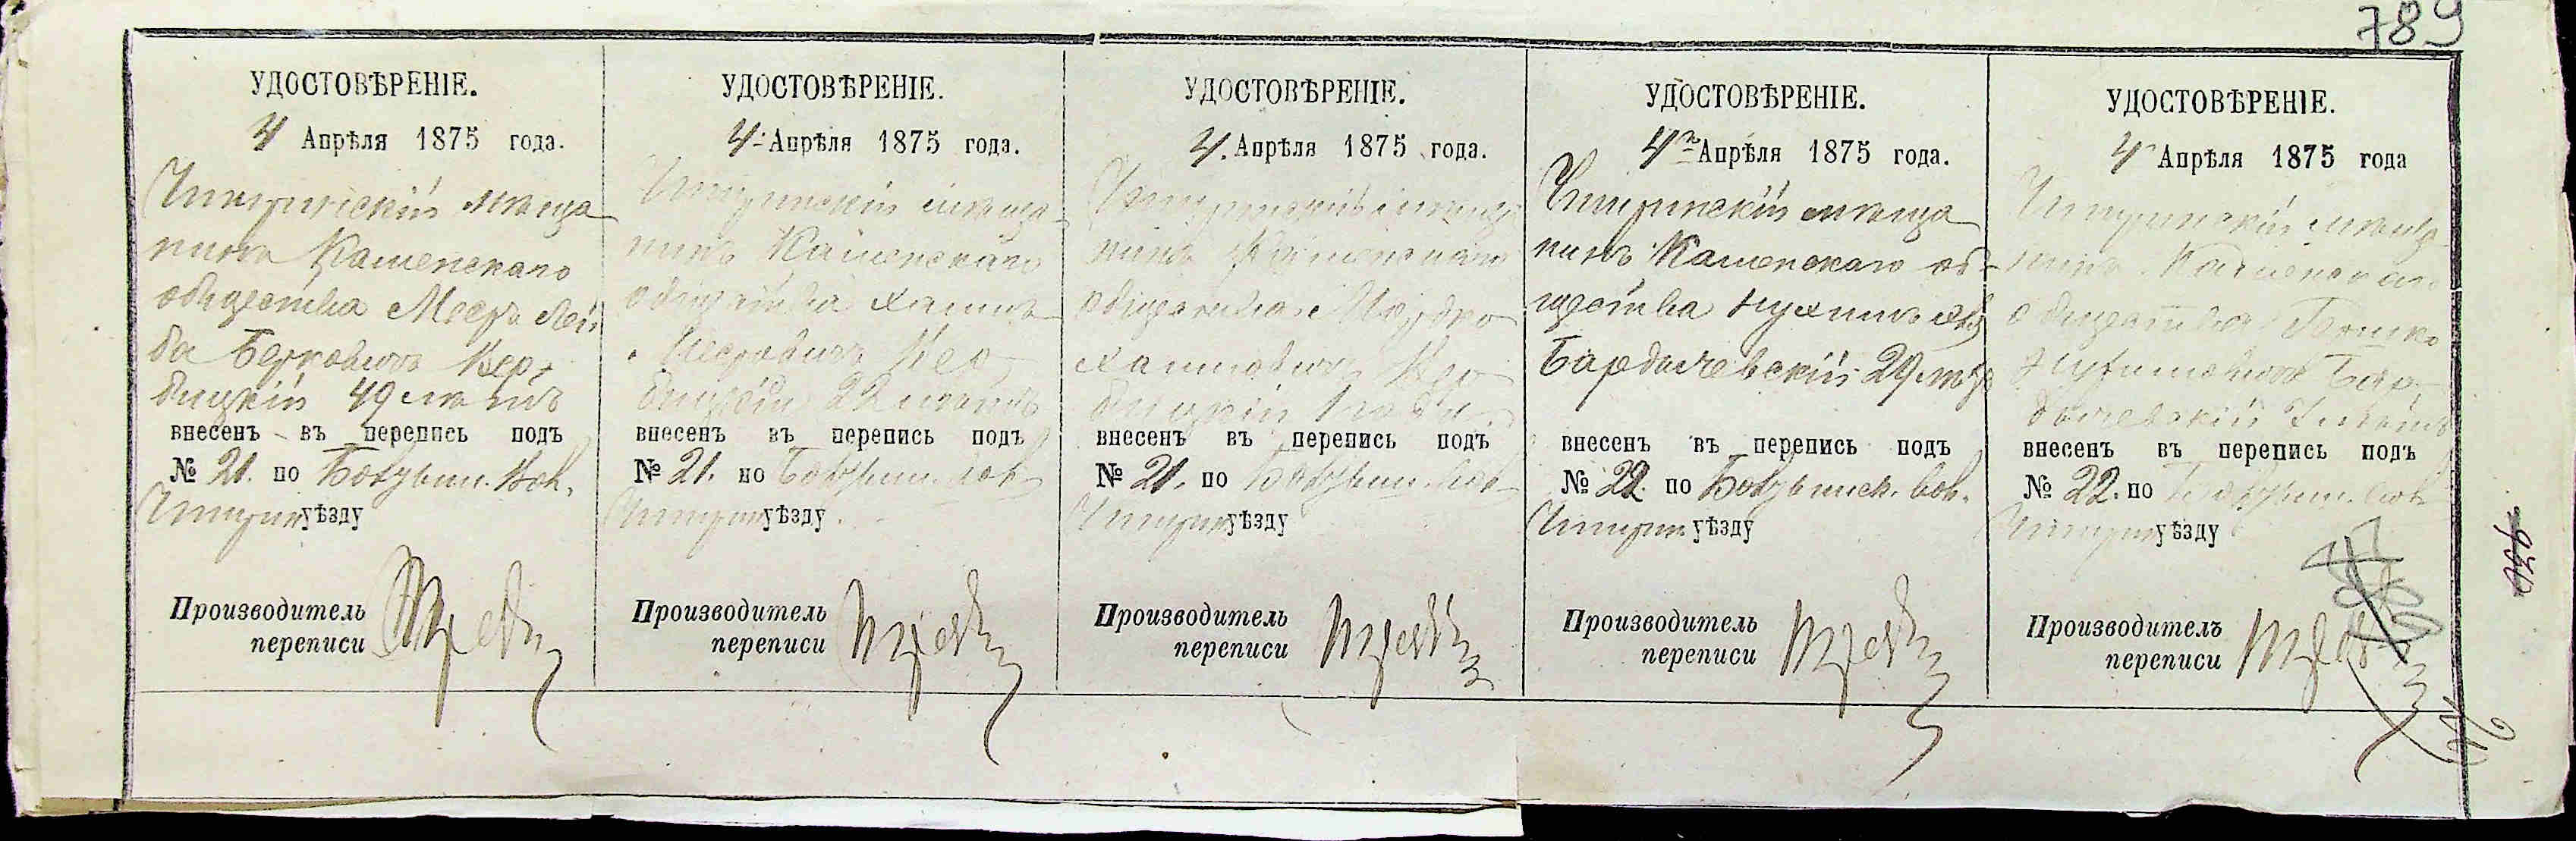 789
УДОСТОВѢРЕНІЕ.
4 Апрѣля 1875 года.
Чигиринскій мѣща
нинъ Каменскаго
общества Меер Лей
ба Берковичъ Вер-
бицкій 49 лѣтъ
внесенъ въ перепись подъ
№ 21. по Бовтыш. Вол.
Чигирин уѣзду
Производитель
переписи
УДОСТОВѢРЕНІЕ.
4 Апрѣля 1875 года.
Чигиринскій мѣща-
нинъ Каменскаго
общества Хаимъ
Мееровичъ Вер-
бицкій 22 лѣтъ
внесенъ въ перепись подъ
№ 21. по Бовтыш. вол.
Чигирин уѣзду
Производитель
переписи
УДОСТОВѢРЕНІЕ.
4. Апрѣля 1875 года.
Чигиринскій мѣща
нинъ Каменскаго
общества
Хаимовичъ Вер
бицкій 1 года
внесенъ въ перепись подъ
№ 21. по Бовтыш. вол.
Чигирин уѣзду
Производитель
переписи
УДОСТОВѢРЕНІЕ.
4 Апрѣля 1875 года.
Чигиринскій мѣща
нинъ Каменскаго об-
щества Нухимъ
Бардичевскій 29 лѣтъ
внесенъ въ перепись подъ
№ 22. по Бовтышск. вол.
Чигирин. уѣзду
Производитель
переписи
УДОСТОВѢРЕНІЕ.
4 Апрѣля 1875 года
Чигиринскій мѣща
нинъ Каменскаго
общества Гершко
Нухимовичъ Бар-
дичевскій 7 лѣтъ
внесенъ въ перепись подъ
№ 22. по Бовтыш. вол
Чигирин уѣзду
Производитель
переписи